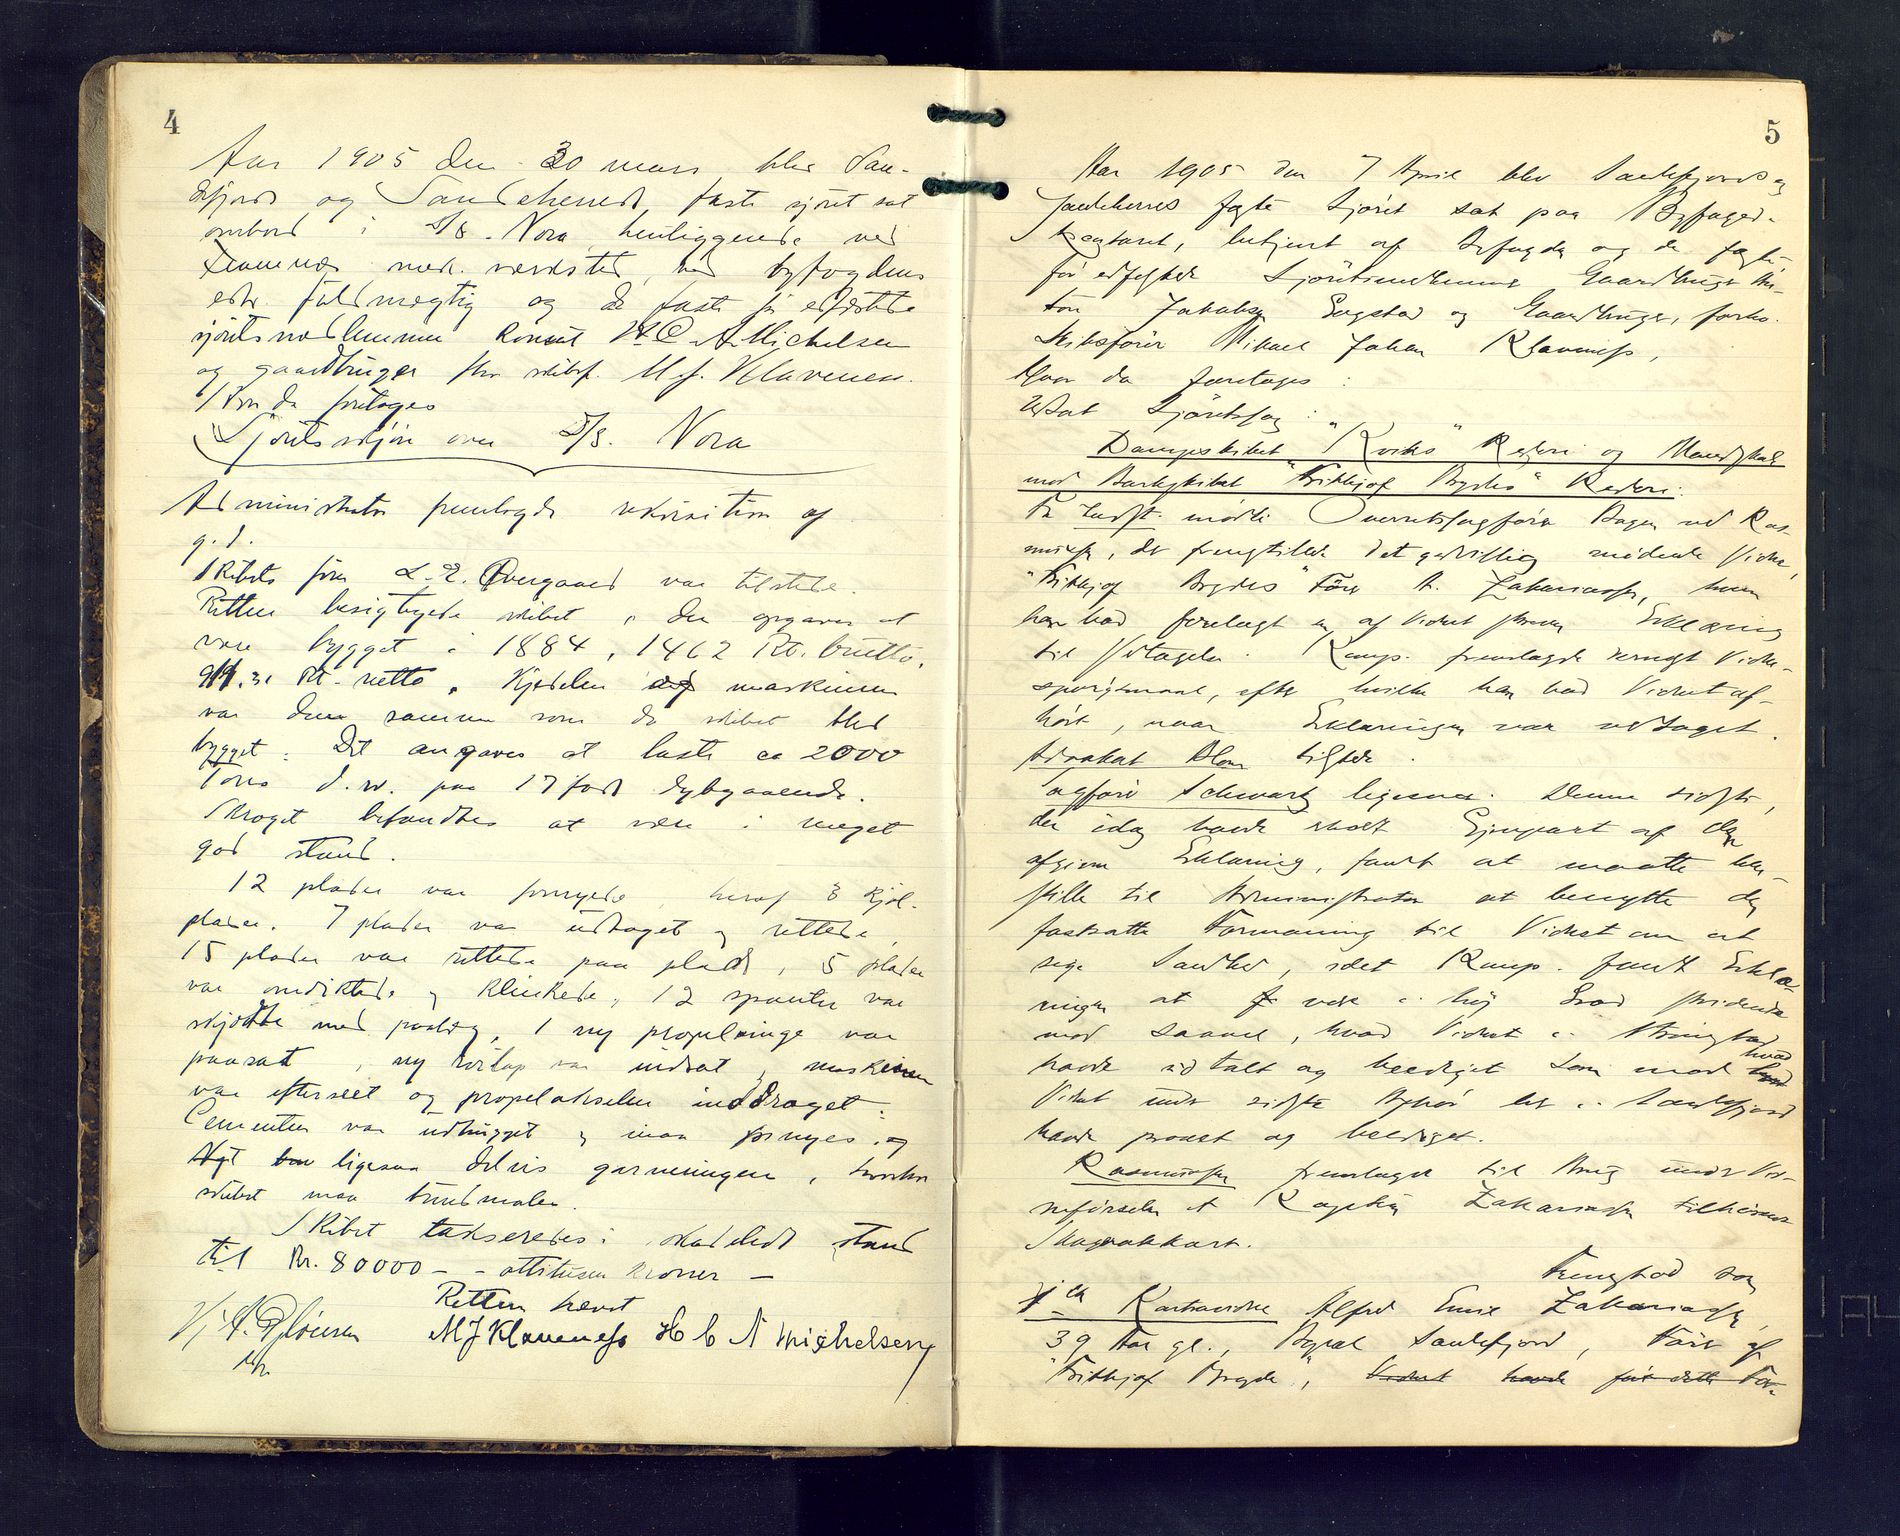 4
Aar 1905 den 30 mars blev San-
defjords og Sandeherreds faste sjöret sat
ombord i D/S. Nora henliggende ved
Framnæs mek. værksted, ved byfogdens
edsv. fuldmægtig og de faste för edfæstede
sjöretsmedlemmer Konsul H C A Michelsen
og gaardbruger fhv skibsf. M. J. Klavenes.
Hvor da foretoges
Sjöretsskjön over D/S. Nora
Administrator fremlagde rekvisition af
g. d.
Skibets förer L. E. Overgaard var tilstede.
Retten besigtigede skibet, der opgaves at
være bygget i 1884, 1462 Rt. brutto,
911.31 Rt. netto. Kjedelen og maskinen
var den samme som da skibet blev
bygget. Det angaves at laste ca 2000
Tons d. w. paa 17 fods dybgaaende.
Skroget befandtes at være i meget
god stand.
12 plader var fornyede, heraf 3 kjöl-
plader. 7 plader var udtaget og rettede,
15 plader var rettede paa plads, 5 plader
var omdiktede og klinkede, 12 spanter var
skjödte med paalæg, 1 ny propelvinge var
paasat, ny rorlap var indsat, maskinen
var efterseet og propelakselen inddraget.
Cementen var udhugget og maa fornyes og
ligesaa delvis garneringen, hvorhos
skibet maa bundmales.
Skibet takseredes i skadelidt stand
til Kr. 80000 - - ottitusen kroner -
Retten hævet
M J Klaveness H C A Michelsen
5
Aar 1905 den 7 April blev Sandefjords og
Sandeherreds faste Sjöret sat paa Byfoged-
kontoret, betjent af Byfogden og de faste
för edfæstede Sjöretsmedlemmer Gaardbruger An-
ton Jakobsen Bugstad og Gaardbruger, forhv.
Skibsförer Mikael Johan Klavness,
Hvor da foretoges:
Udsat Sjöretssag:
Dampskibet "Kviks" Rederi og Mandskab
mod Barkskibet "Fritthjof Brydes" Rederi.
For mödte Overretssagförer Bogen ved Ras-
mussen, der fremstillede det godvillig mödende Vidne,
"Fritthjof Brydes" Förer A. Zakariassen, hvem
han bad forelagt en af Vidnet skreven Erklæring
til Vedtagelse. Komp. fremlagde dernæst Vidne-
spörgsmaal, efter hvilke han bad Vidnet af-
hört, naar Erklæringen var vedtaget.
Advokat Blom tilstede.
Sagförer Schwartz ligesaa. Denne sidste,
der idag havde modt Gjenpart af den
afgivne Erklæring, fandt at maatte hen-
stille til Administrator at benytte den
fastsatte Formaning til Vidnet om at
sige Sandhed, idet Komp. fandt Erklæ-
ringen at være i höj Grad stridende
mod saavel, hvad Vidnet i Strömstad
havde udtalt og beediget som mod hvad
Vidnet under sidste Afhör her i Sandefjord
havde provet og beediget.
Rasmussen fremlagde til Brug under Vid-
neförselen et Kaptein Zakariassen tilhörende
Skagerakkart.
Fremstod som
1ste Kontravidne Alfred Emil Zakariassen,
39 Aar gl., Bopæl Sandefjord, Förer af
"Fritthjof Bryde", Vidnet havde för dette For-